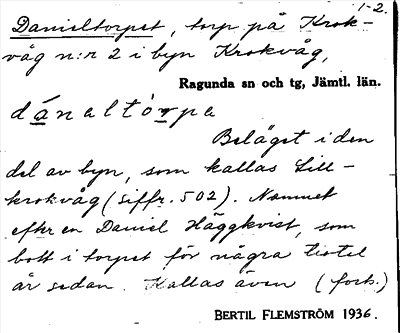 1-2.
Danieltorpet, torp på Krok-
våg n:r 2 i byn Krokvåg,
Ragunda sn och tg, Jämtl. län.
dánaltòrpa
Beläget i den
del av byn, som kallas Lill-
krokvåg (siffr. 502). Namnet
efter en Daniel Häggkvist, som
bott i torpet för några tiotal
år sedan. Kallas även (forts.)
BERTIL FLEMSTRÖM 1936.